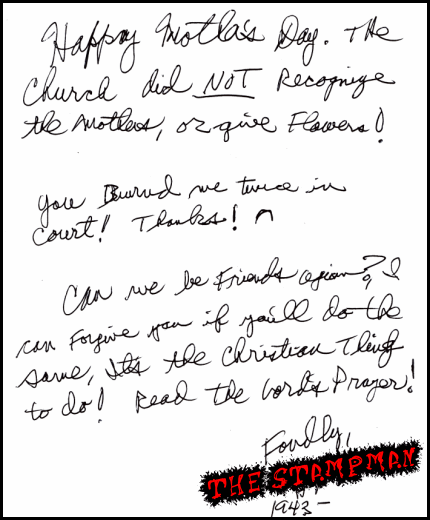 Happy Mother's Day. The
Church did NOT Recognize
the Mothers, or give Flowers!
you Burned me twice in
court! Thanks!
Can we be Friends again? I
can Forgive you if you'll do the
same, It's the Christian Thing
to do! Read the Lord's Prayer!
Fondly,
THE STAMPMAN
1943-